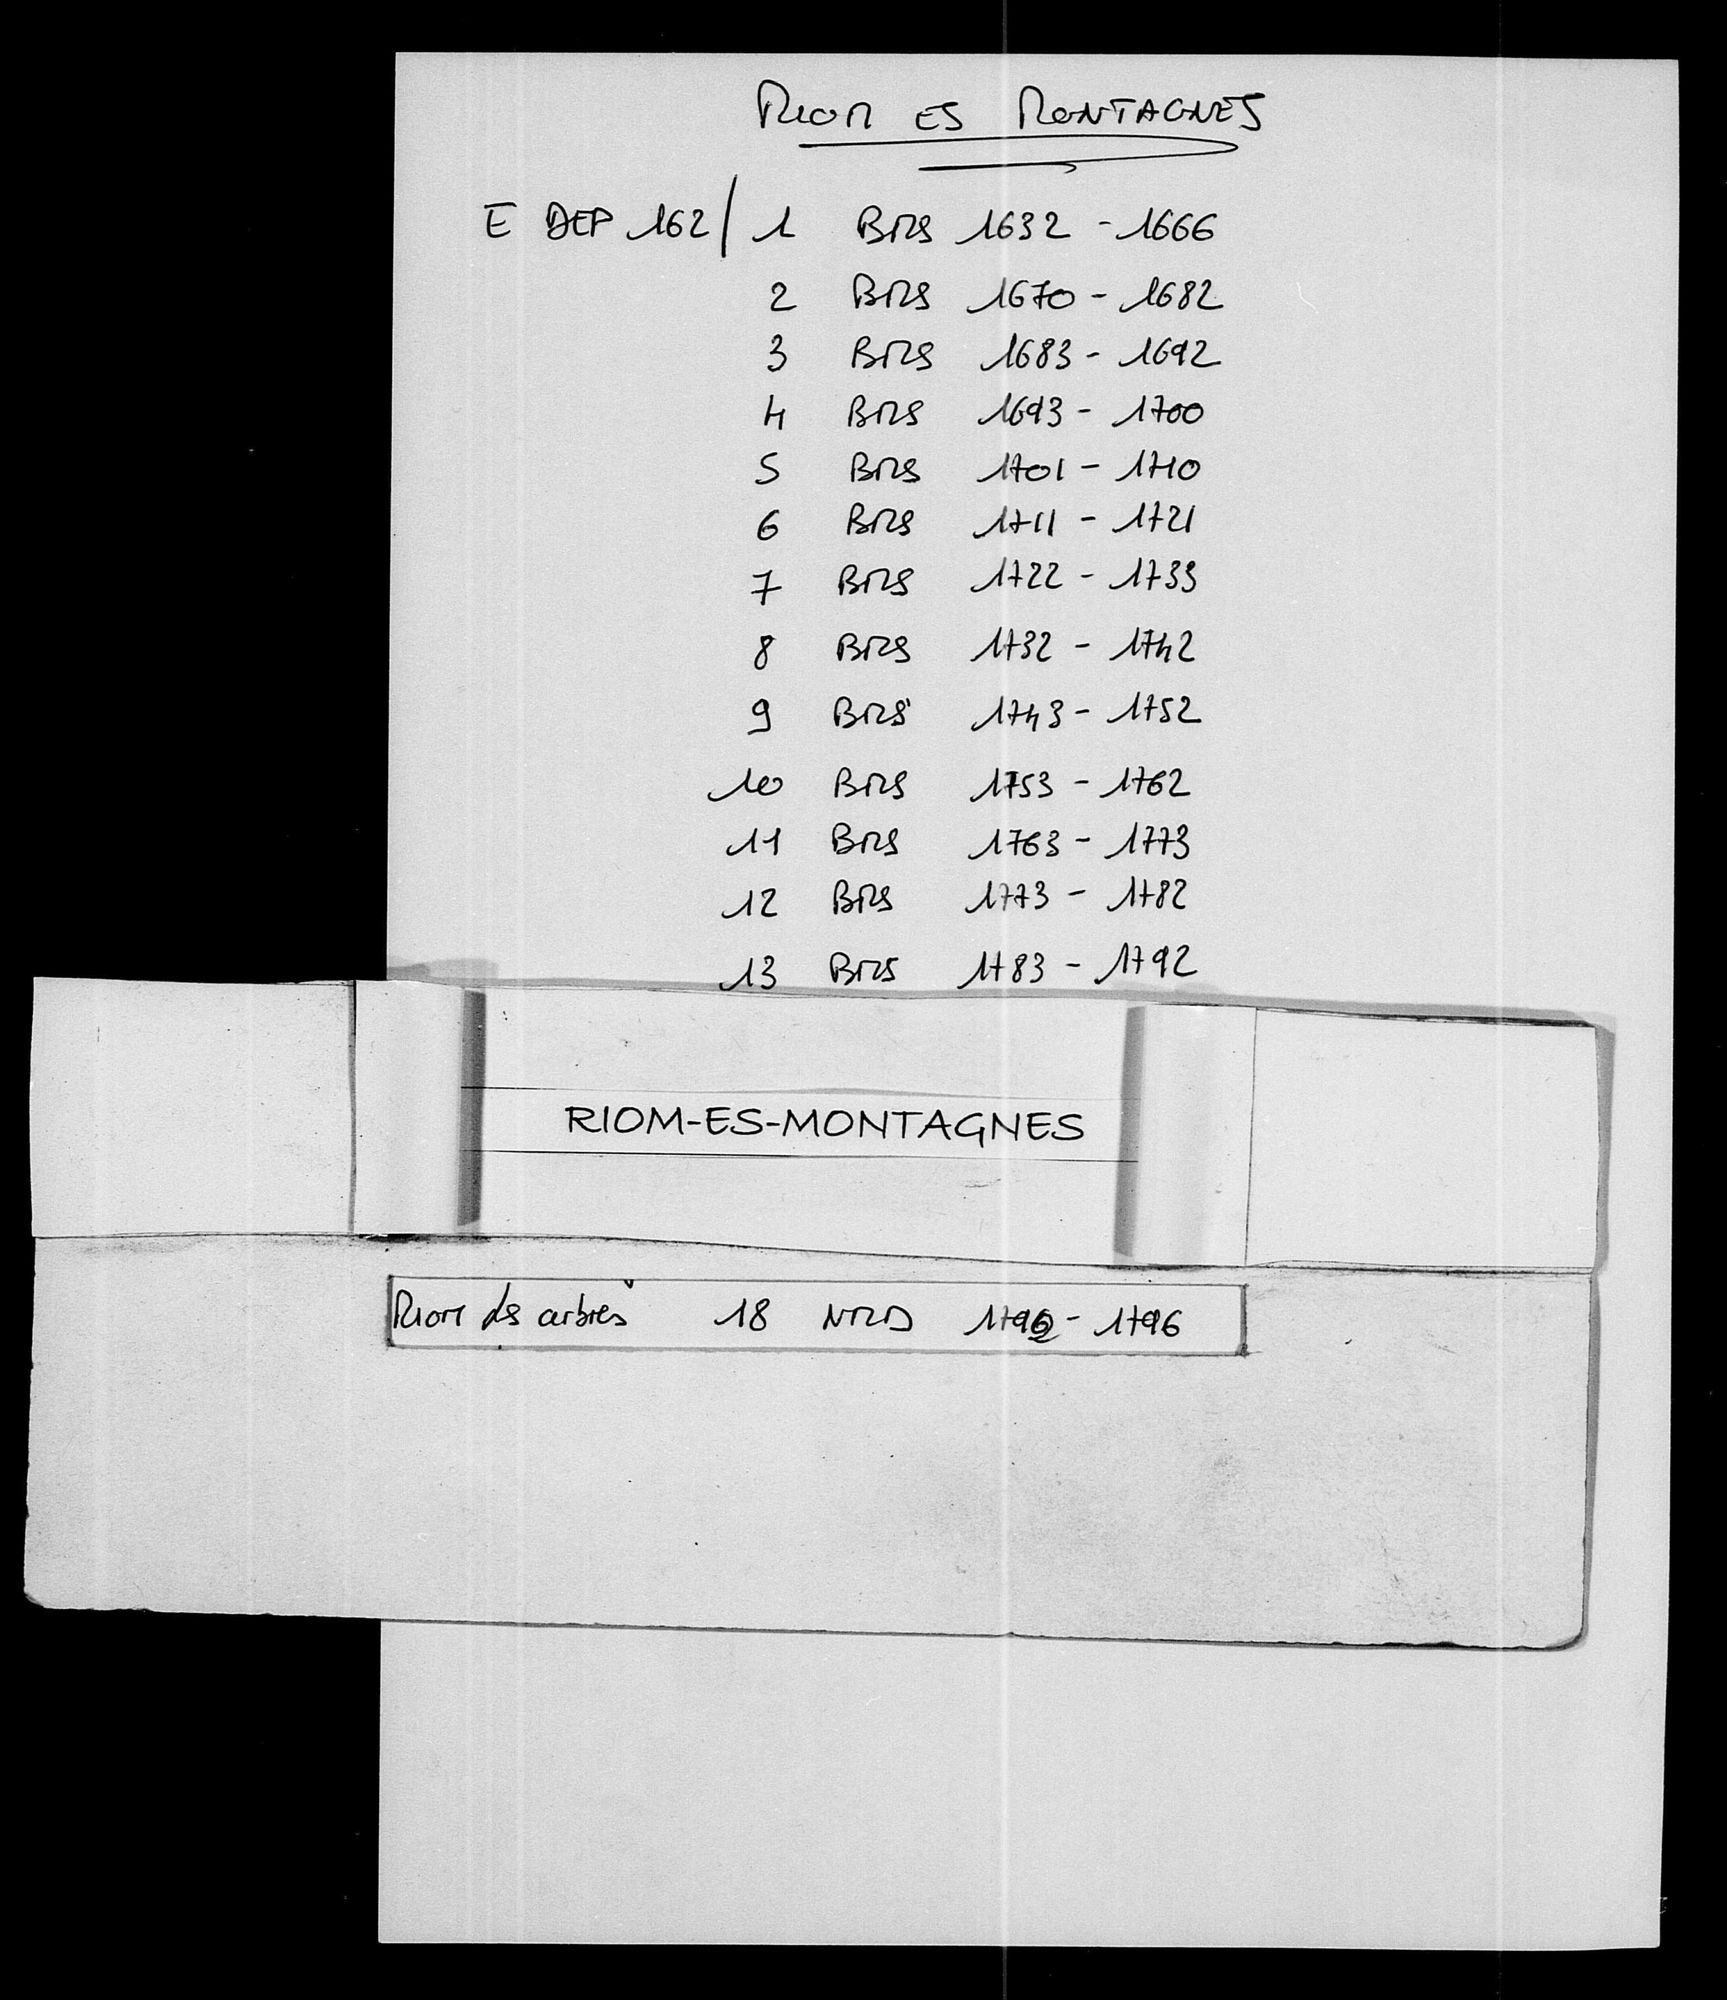 RIOM ES MONTAGNES
E DEP 162/1 BMS 1632 - 1666
2 BMS 1670 - 1682
3 BMS 1683 - 1692
4 BMS 1693 - 1700
5 BMS 1701 - 1710
6 BMS 1711 - 1721
7 BMS 1722 - 1733
8 BMS 1732 - 1742
9 BMS 1743 - 1752
10 BMS 1753 - 1762
11 BMS 1763 - 1773
12 BMS 1773 - 1782
13 BMS 1783 - 1792
RIOM-ES-MONTAGNES
Riom des arbres 18 NMD 1792 - 1796